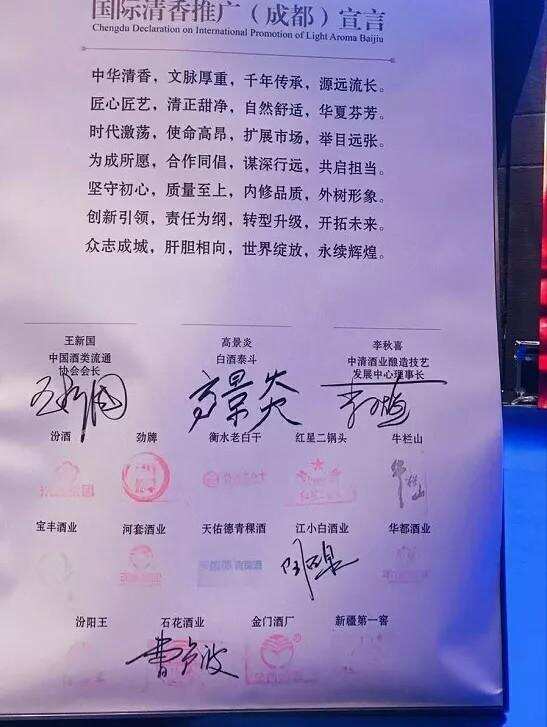 国际清香推广（成都）宣言
Chengdu Declaration on International Promotion of Light Aroma Baijiu
中华清香，文脉厚重，千年传承，源远流长。
匠心匠艺，清正甜净，自然舒适，华夏芬芳。
时代激荡，使命高昂，扩展市场，举目远张。
为成所愿，合作同倡，谋深行远，共启担当。
坚守初心，质量至上，内修品质，外树形象。
创新引领，责任为纲，转型升级，开拓未来。
众志成城，肝胆相向，世界绽放，永续辉煌。
王新国 高景炎 李秋喜
中国酒类流通 白酒泰斗 中清酒业酿造技艺
协会会长 发展中心理事长
王新国 高景炎 李秋喜
汾酒 劲牌 衡水老白干 红星二锅头 牛栏山
牛栏山
宝丰酒业 河套酒业 天佑德青稞酒 江小白酒业 华都酒业
汾阳王 石花酒业 金门酒厂 新疆第一窖
曹卢波